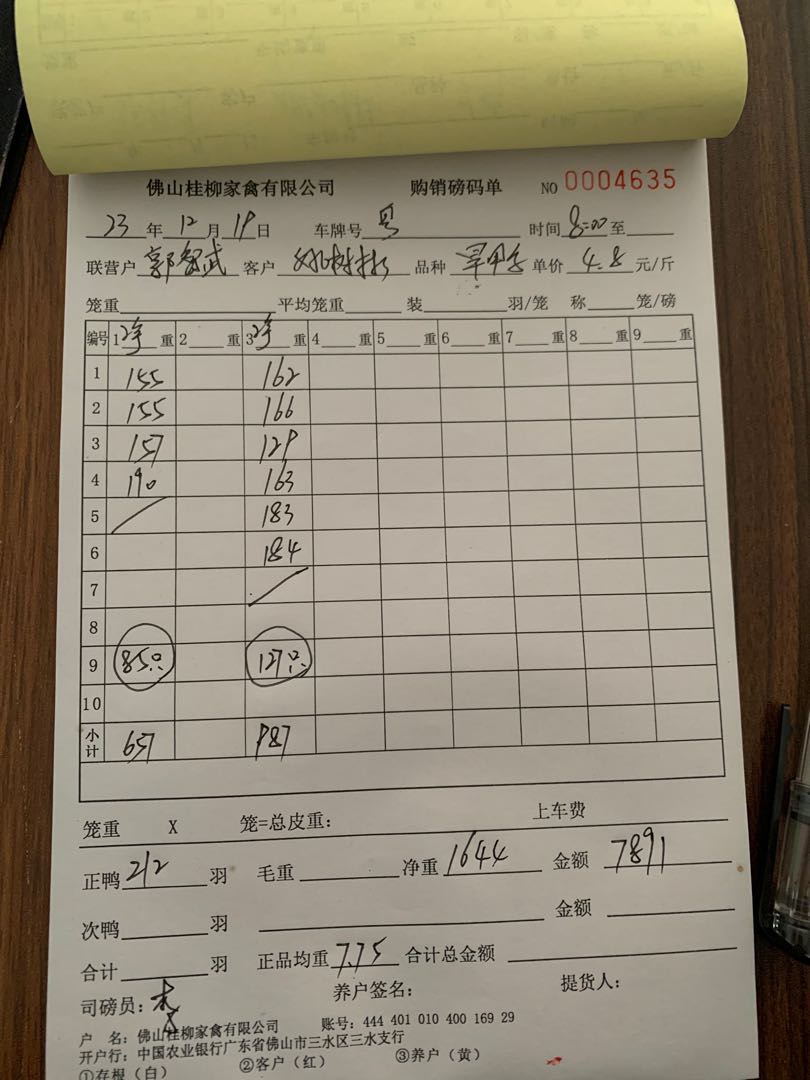 佛山桂柳家禽有限公司 购销磅码单 NO 0004635
23 年 12 月 19 日 车牌号 粤 时间 8:00 至
联营户 郭 武 客户 品种 单价 4.8 元/斤
笼重 平均笼重 装 羽/笼 称 笼/磅
编号 1 净 重 2 重 3 净 重 4 重 5 重 6 重 7 重 8 重 9 重
1 155 162
2 155 166
3 157 129
4 190 163
5 183
6 184
7
8
9 85只 127只
10
小计 657 987
笼重 X 笼=总皮重: 上车费
正鸭 212 羽 毛重 净重 1644 金额 7891
次鸭 羽 金额
合计 羽 正品均重 7.75 合计总金额
司磅员: 养户签名: 提货人:
户 名: 佛山桂柳家禽有限公司 账号: 444 401 010 400 169 29
开户行: 中国农业银行广东省佛山市三水区三水支行
①存根(白) ②客户(红) ③养户(黄)